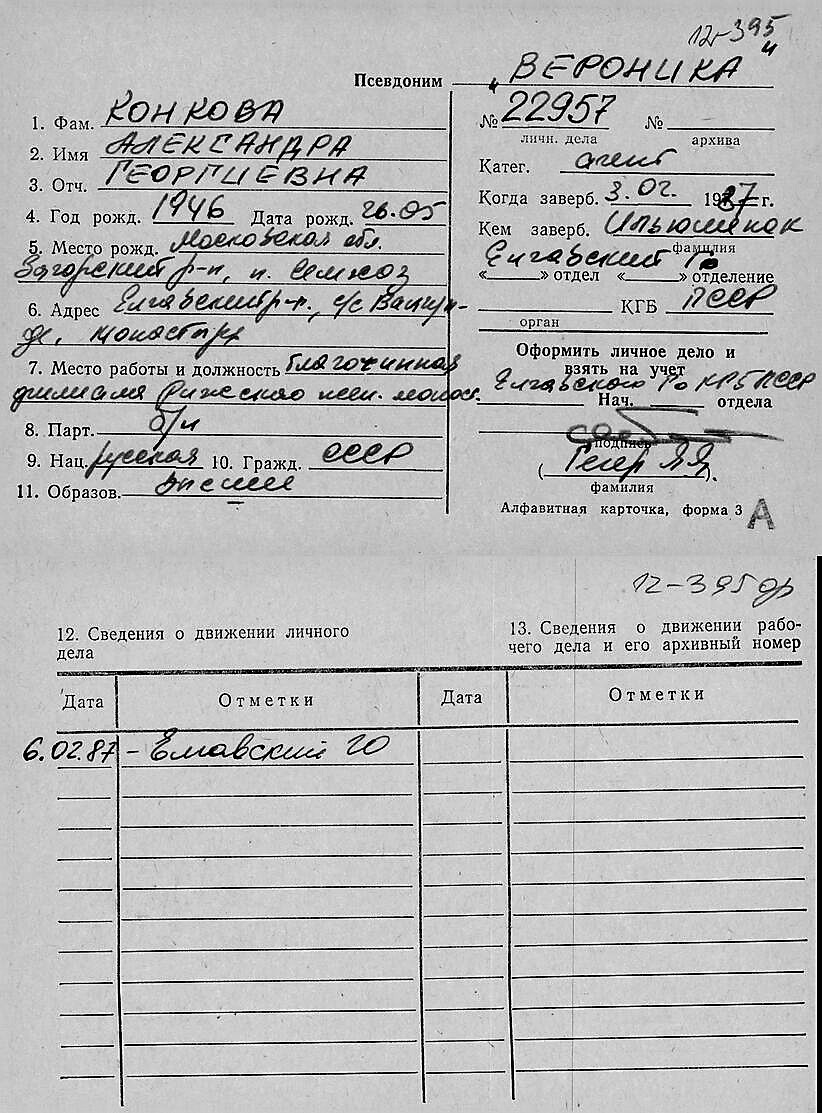 12-395
Псевдоним „ВЕРОНИКА
1. Фам. КОНКОВА
2. Имя АЛЕКСАНДРА
3. Отч. ГЕОРГИЕВНА
4. Год рожд. 1946 Дата рожд. 26.05
5. Место рожд. Московская обл.
Загорский р-н, п. Семхоз
6. Адрес Елгавский р-н, с/с Валгун-
де, монастырь
7. Место работы и должность благочинная
филиала Рижского жен. монаст.
8. Парт. б/п
9. Нац. русская 10. Гражд. СССР
11. Образов. высшее
№ 22957 №
личн. дела архива
Катег. агент
Когда заверб. 3.02. 1987 г.
Кем заверб. Ильюшинок
фамилия
Елгавский ГО
«    » отдел «    » отделение
КГБ ЛССР
орган
Оформить личное дело и
взять на учет
Елгавского ГО КГБ ЛССР
Нач. отдела
подпись
( Гегер Я.Я. )
фамилия
Алфавитная карточка, форма 3 А
12-395
12. Сведения о движении личного
дела
13. Сведения о движении рабо-
чего дела и его архивный номер
Дата Отметки Дата Отметки
6.02.87 - Елгавский ГО